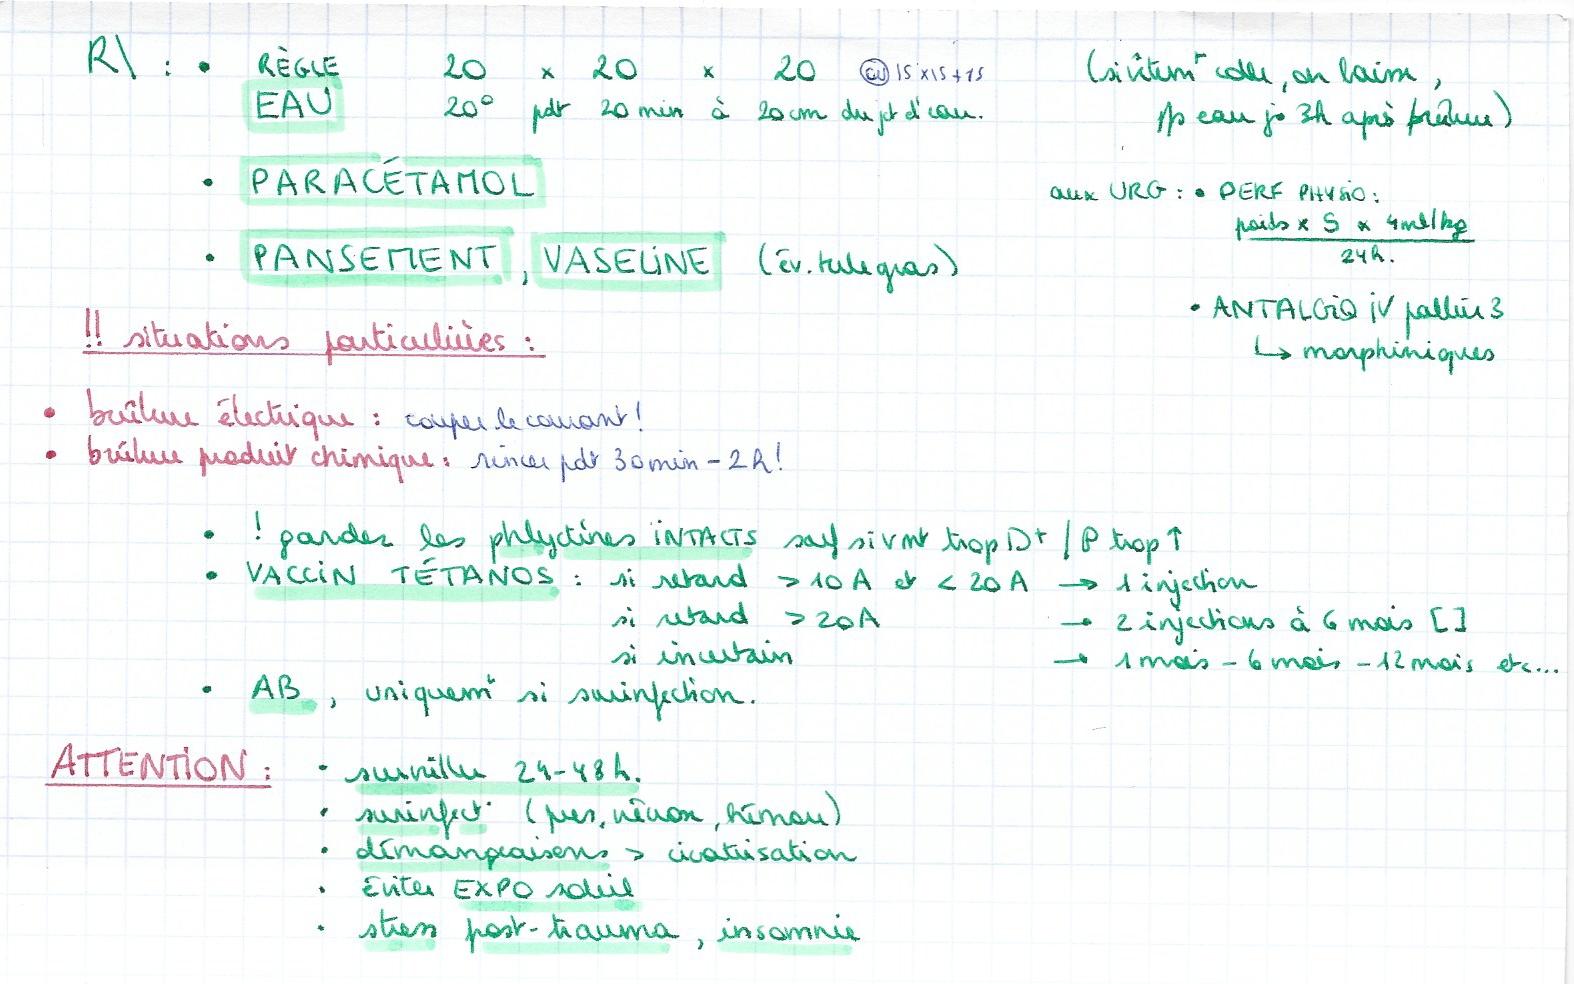 R\ : • RÈGLE 20 x 20 x 20 ou 15 x 15 + 15
EAU 20° pdt 20 min à 20 cm du jet d'eau.
(si vêtemt colle, on laisse,
eau jq 3h après brûlure)
• PARACÉTAMOL
• PANSEMENT, VASELINE (év. tulle gras)
aux URG : • PERF PHYSIO :
poids x S x 4ml/kg
24h.
• ANTALGIQ IV pallier 3
↳ morphiniques
!! situations particulières :
• brûlure électrique : couper le courant !
• brûlure produit chimique : rincer pdt 30 min - 2h !
• ! garder les phlyctènes INTACTS sauf si vmt trop D+ / P trop ↑
• VACCIN TÉTANOS : si retard > 10 A et < 20 A → 1 injection
si retard > 20 A → 2 injections à 6 mois []
si incertain → 1 mois - 6 mois - 12 mois etc...
• AB, uniquemt si surinfection.
ATTENTION : • surveiller 24-48h.
• surinfect° (pus, nécrose, hémorr)
• démangeaisons > cicatrisation
• éviter EXPO soleil
• stress post-trauma, insomnie